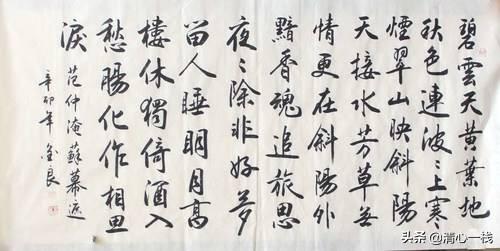 碧雲天黄葉地
秋色連波〻上寒〻
煙翠山映斜陽
天接水芳草無
情更在斜陽外
黯香魂追旅思
夜〻除非好夢
留人睡明月高
樓休獨倚酒入
愁腸化作相思
淚 范仲淹蘇幕遮
辛卯年金良
头条@清心一栈